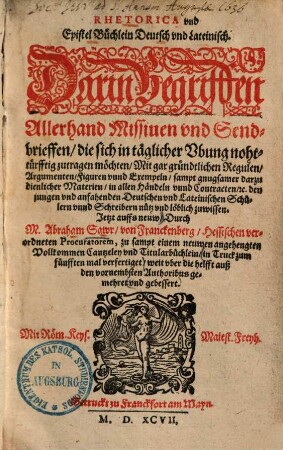 RHETORICA vnd
Epistel Büchlein Deutsch vnd Lateinisch.
Darin begriffen
Allerhand Missiuen vnd Send-
brieffen / die sich in täglicher Vbung noht-
türfftig zutragen möchten / Mit gar gründtlichen Regulen /
Argumenten / Figuren vnnd Exempeln / sampt gnugsamer darzu
dienlicher Materien / in allen Händeln vnnd Contracten / ɾc. den
jungen vnd anfahenden Deutschen vnd Lateinischen Schü-
lern vnnd Schreibern nütz vnd löblich zuwissen.
Jetzt auffs neuw / Durch
M. Abraham Sawr / von Franckenberg / Hessischen ver-
ordneten Procuratorem, zu sampt einem neuwen angehengten
Vollkommen Cantzeley vnd Titularbüchlein / in Truck zum
fünfften mal verfertiget / weit vber die helfft auß
den vornembsten Authoribus ge-
mehret vnd gebessert.
Mit Röm. Keys.
Maiest. Freyh.
EIGENTUM DES KATHOL. STUDIENFONDS
IN
AUGSBURG
Getruckt zu Franckfort am Mayn.
M. D. XCVII.